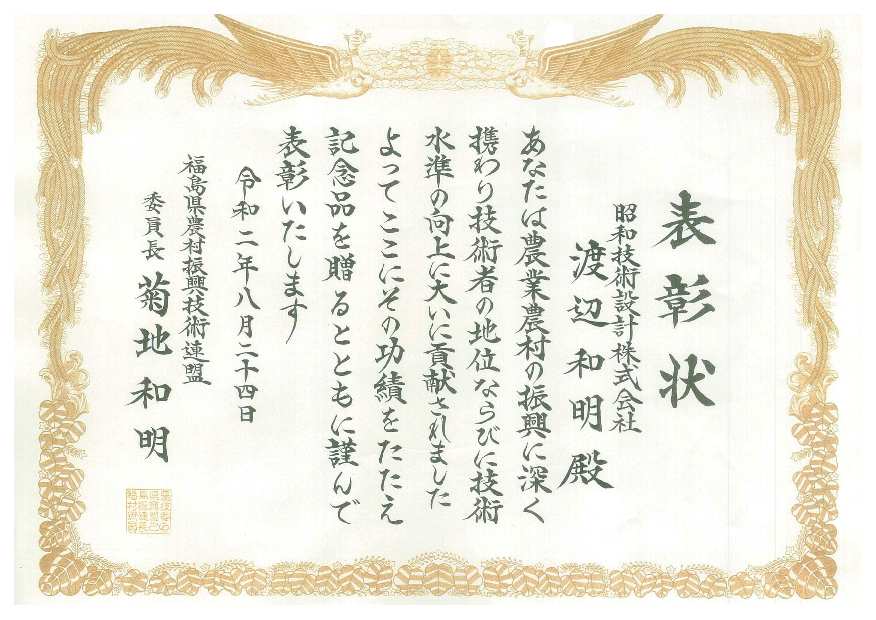 表彰状
昭和技術設計株式会社
渡辺和明殿
あなたは農業農村の振興に深く
携わり技術者の地位ならびに技術
水準の向上に大いに貢献されました
よってここにその功績をたたえ
記念品を贈るとともに謹んで
表彰いたします
令和二年八月二十四日
福島県農村振興技術連盟
委員長 菊地和明